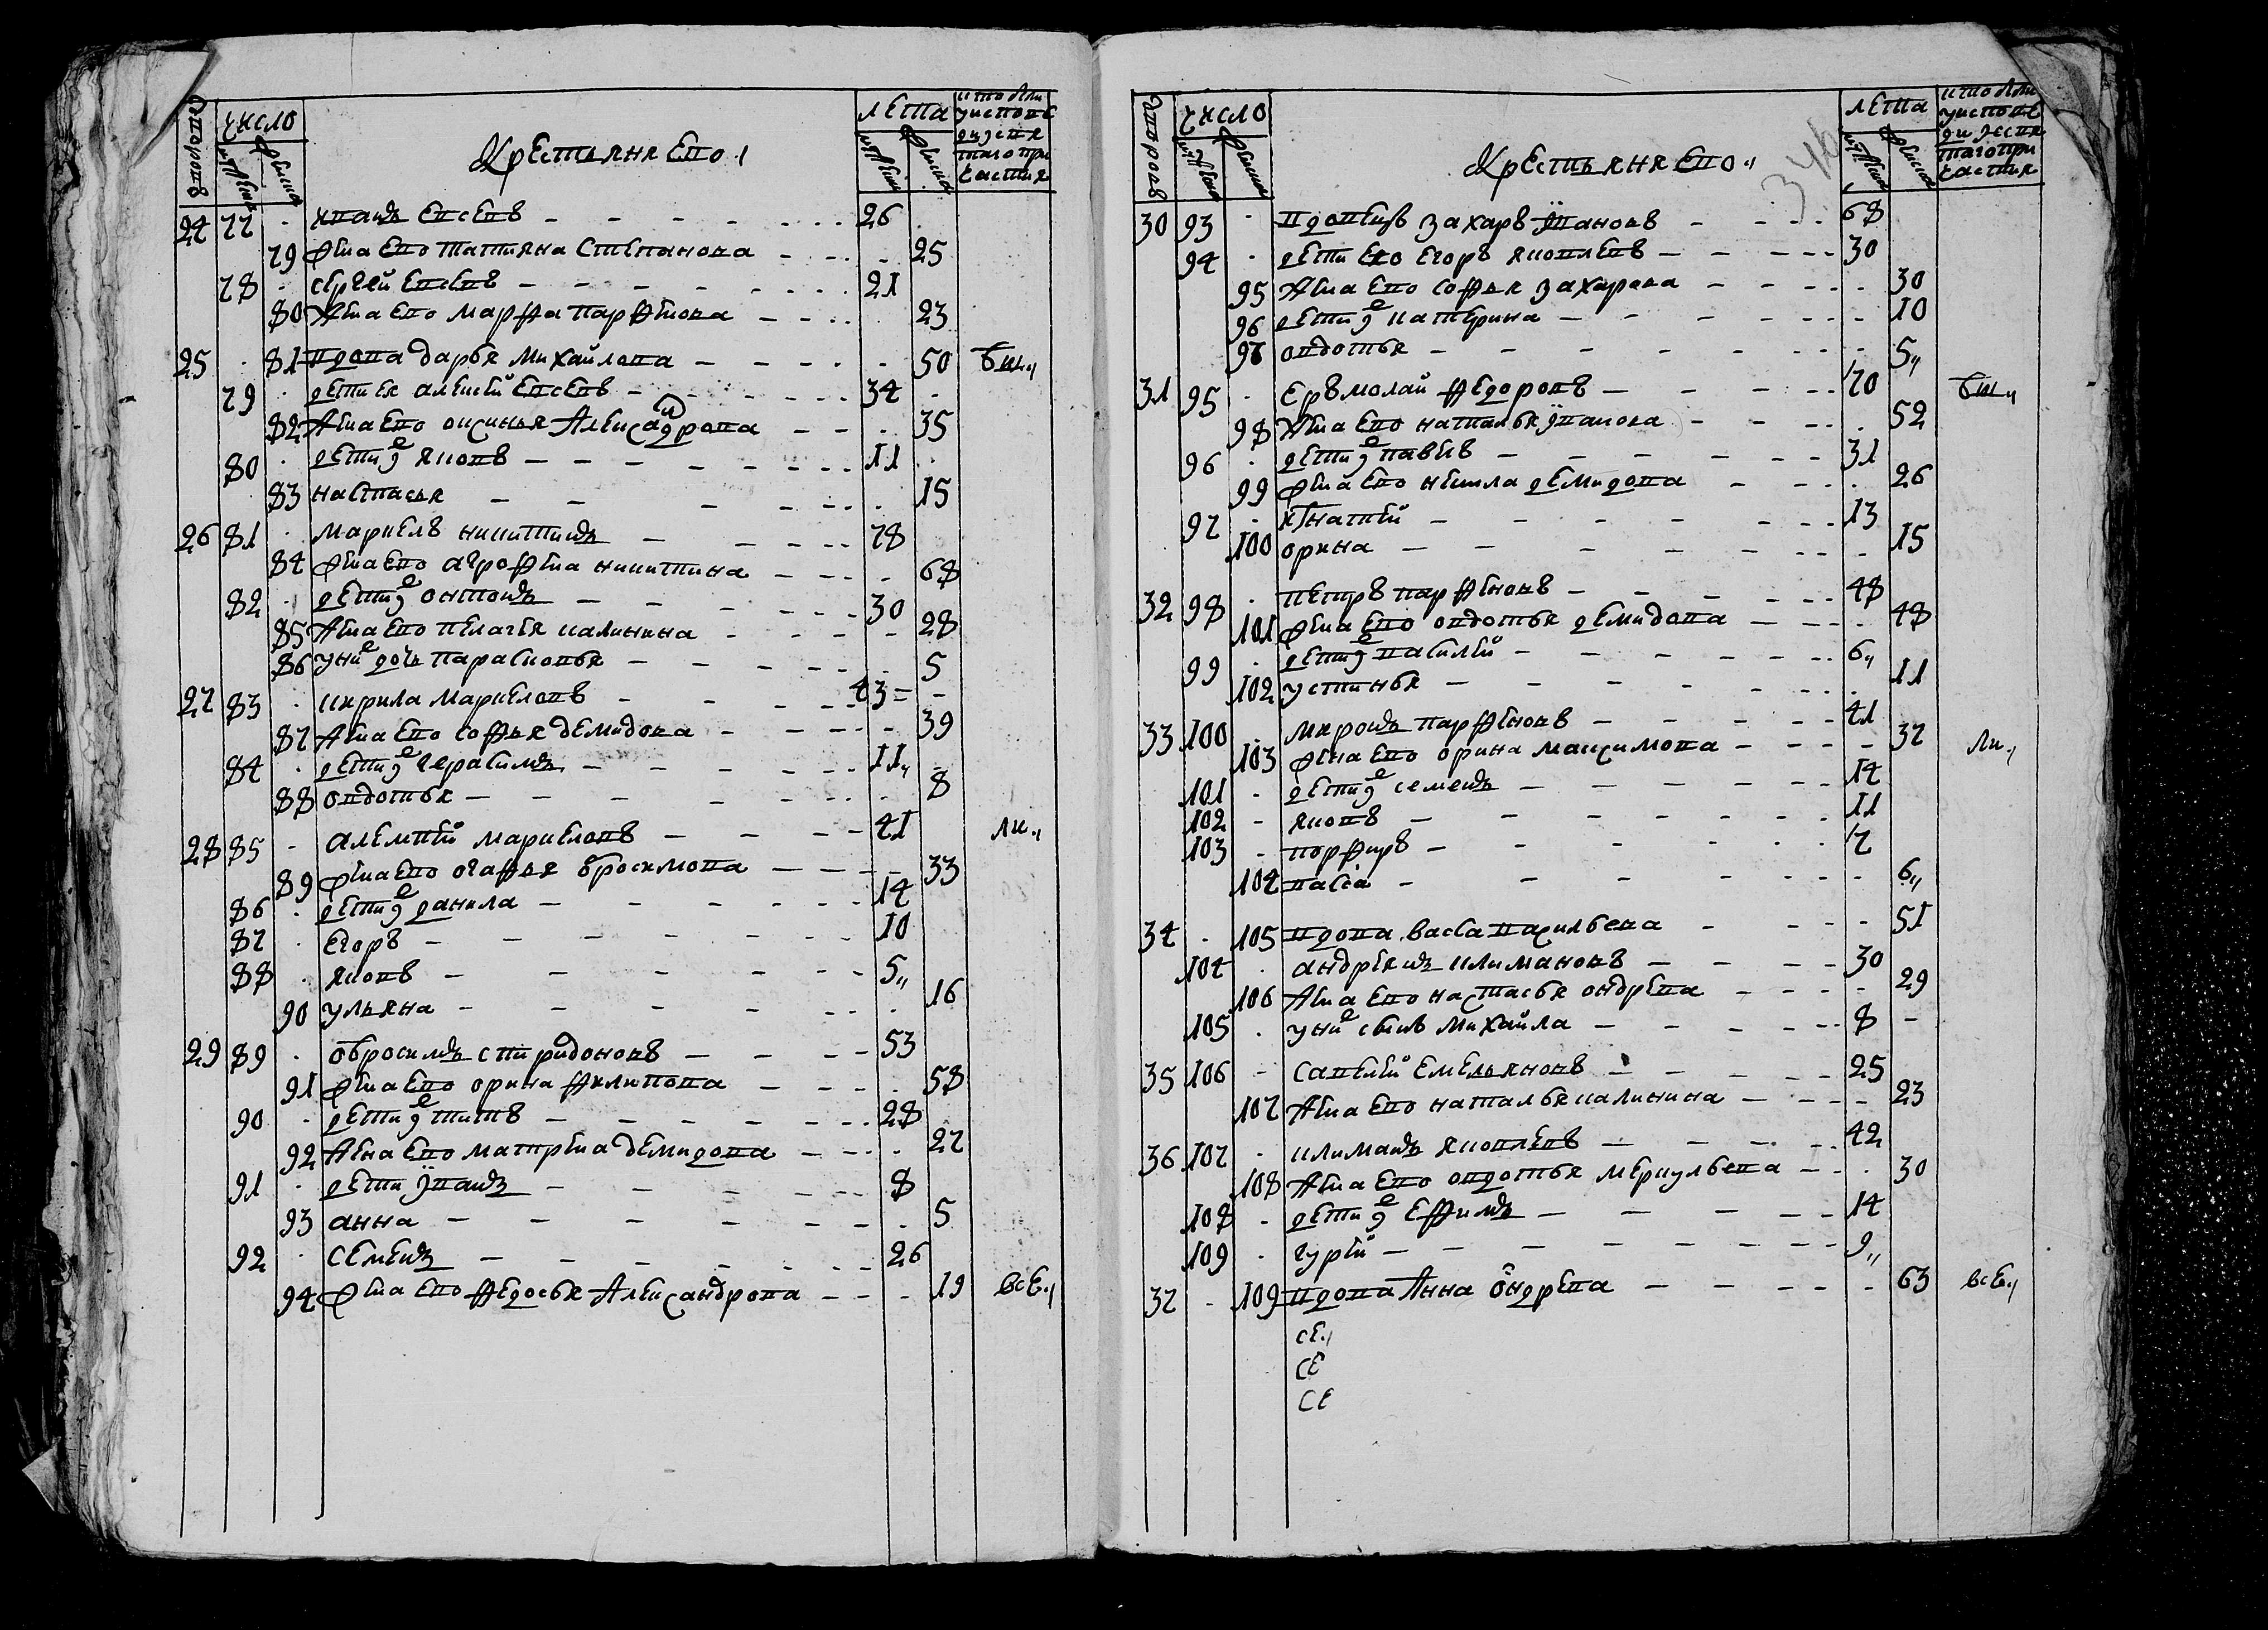 дворовъ число Крестьяня ево лета
24 77 иванъ евсеевъ 26
79 жена ево татияна степанова 25
78 сергей евсеевъ 21
80 жена ево марфа парфенова 23
25 81 вдова дарья михайлова 50 бы
79 дети ея алексей евсеевъ 34
82 жена ево оксинья Александрова 35
80 дети яковъ 11
83 настасья 15
26 81 маркелъ никитинъ 78
84 жена ево аграфена никитина 68
82 дети онтонъ 30
85 жена ево пелагея калинина 28
86 у ни дочь парасковья 5
27 83 кирила маркеловъ 43
87 жена ево софья демидова 39
84 дети герасимъ 11
88 овдотья 8
28 85 алемпей маркеловъ 41 ли
89 жена ево огафья обросимова 33
86 дети данила 14
87 егоръ 10
88 яковъ 5
90 ульяна 16
29 89 обросимъ спиридоновъ 53
91 жена ево орина филипова 58
90 дети титъ 28
92 жена ево матрена демидова 27
91 дети иванъ 8
93 анна 5
92 семенъ 26
94 жена ево федосья Александрова 19 все
дворовъ число Крестьяня ево лета
346
30 93 вдовецъ захаръ ивановъ 68
94 дети ево егоръ яковлевъ 30
95 жена ево софья захарова 30
96 дети катерина 10
97 овдотья 5
31 95 ермолай федоровъ 70 бы
98 жена ево наталья иванова 52
96 дети павелъ 31
99 жена ево некила демидова 26
97 игнатей 13
100 орина 15
32 98 петръ парфеновъ 48
101 жена ево овдотья демидова 48
99 дети василей 6
102 устинья 11
33 100 миронъ парфеновъ 41
103 жена ево орина максимова 37 ли
101 дети семенъ 14
102 яковъ 11
103 порфиръ 7
104 васса 6
34 105 вдова васса васильева 51
104 андреянъ климановъ 30
106 жена ево настасья ондреева 29
105 у ни сынъ михайла 8
35 106 савелей емельяновъ 25
107 жена ево наталья калинина 23
36 107 климанъ яковлевъ 42
108 жена ево овдотья меркульева 30
108 дети ефимъ 14
109 гурей 9
37 109 вдова Анна ондреева 63 все
се
се
се